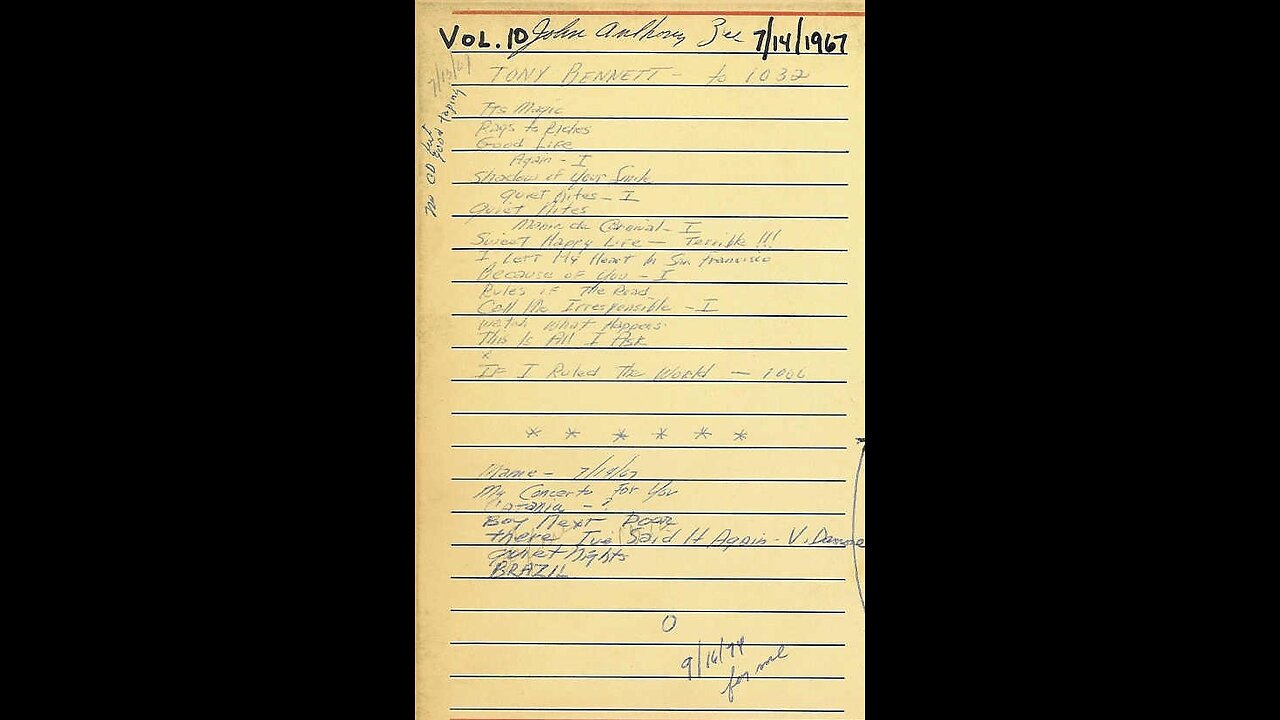 VOL. 10 John Anthony 7/14/1967
7/13/67
no CD but
good taping
TONY BENNETT - to 1032
Its Magic
Rags to Riches
Good Life
Again - I
Shadow of Your Smile
Quiet Nites - I
Quiet Nites
Manha de Carnival - I
Sweet Happy Life - Terrible !!!
I Left My Heart In San Francisco
Because of You - I
Rules of The Road
Call Me Irresponsible - I
Watch What Happens
This Is All I Ask
&
If I Ruled The World - 1006
* * * * * *
Mame - 7/19/67
My Concerto For You
Boy Next Door
there I've Said It Again - V. Damone
Quiet Nights
BRAZIL
O
9/16/74
for me